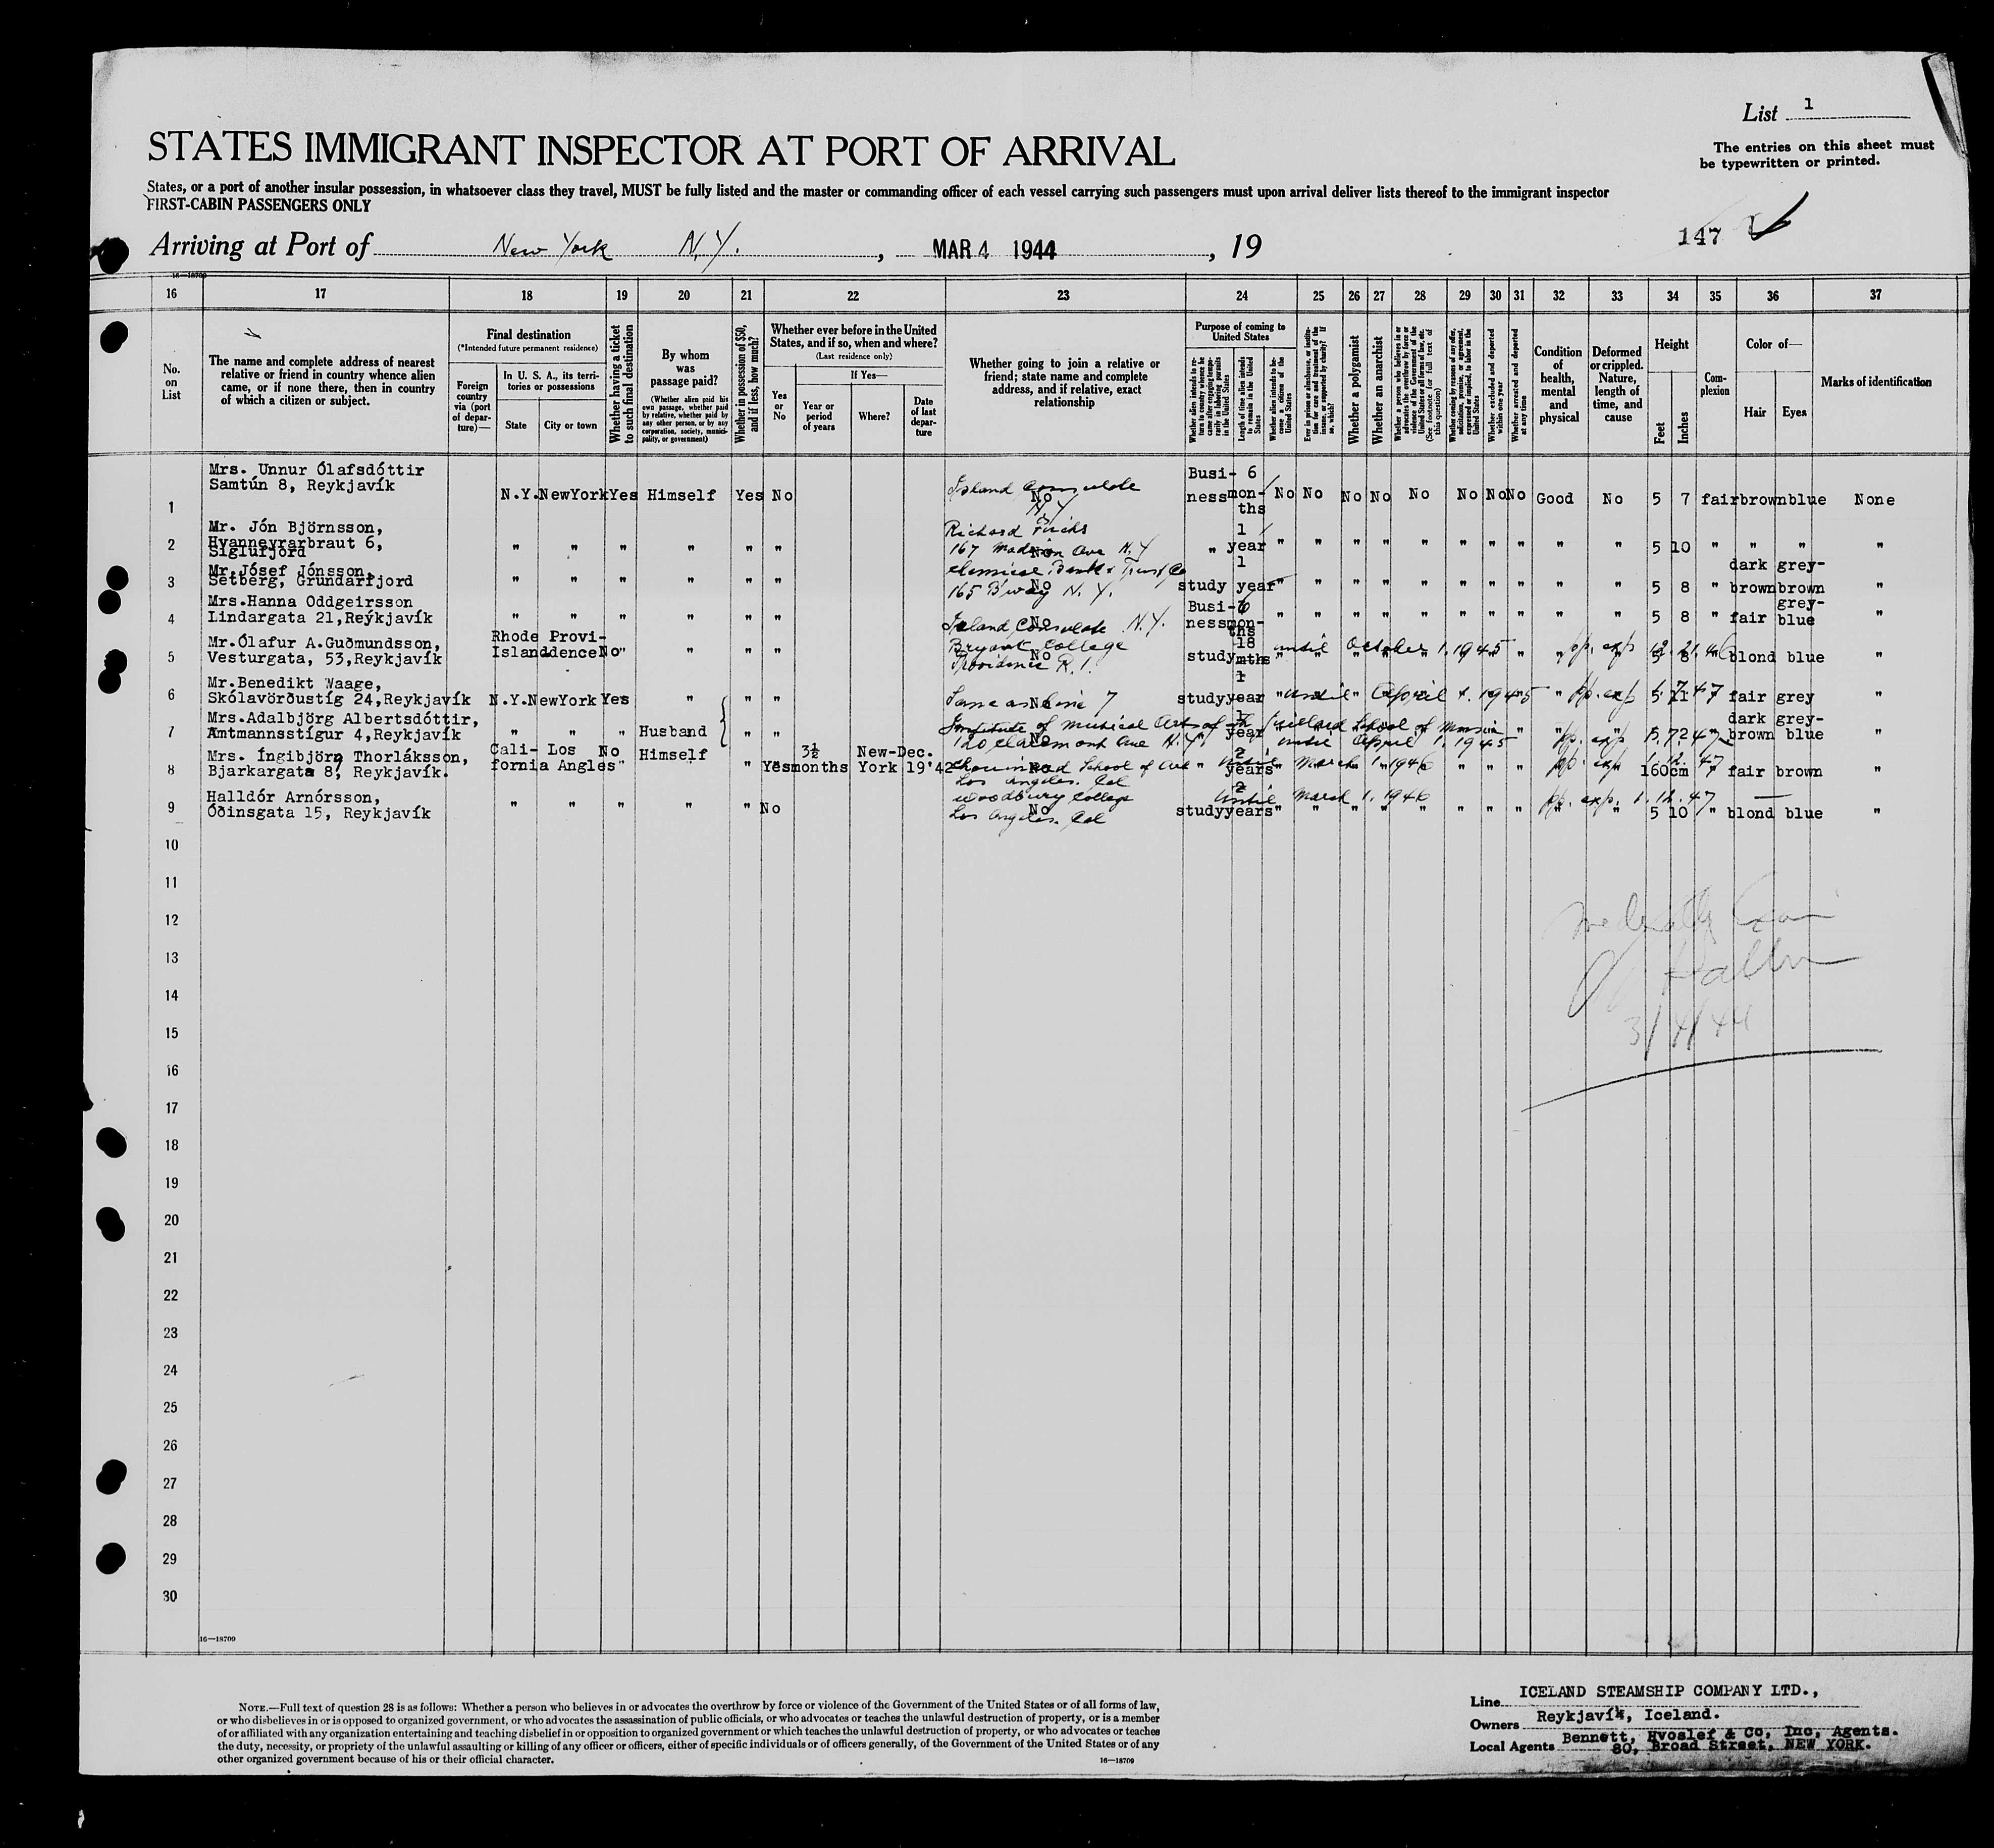 List 1
The entries on this sheet must
be typewritten or printed.
STATES IMMIGRANT INSPECTOR AT PORT OF ARRIVAL
States, or a port of another insular possession, in whatsoever class they travel, MUST be fully listed and the master or commanding officer of each vessel carrying such passengers must upon arrival deliver lists thereof to the immigrant inspector
FIRST-CABIN PASSENGERS ONLY
147
Arriving at Port of New York N.Y. , MAR 4 1944 , 19
16—18709
16 17 18 19 20 21 22 23 24 25 26 27 28 29 30 31 32 33 34 35 36 37
No. on List
The name and complete address of nearest relative or friend in country whence alien came, or if none there, then in country of which a citizen or subject.
Final destination
(*Intended future permanent residence)
Foreign country via (port of departure)—
In U. S. A., its territories or possessions
State
City or town
Whether having a ticket to such final destination
By whom was passage paid?
(Whether alien paid his own passage, whether paid by relative, whether paid by any other person, or by any corporation, society, municipality, or government)
Whether in possession of $50, and if less, how much?
Whether ever before in the United States, and if so, when and where?
(Last residence only)
Yes or No
If Yes—
Year or period of years
Where?
Date of last departure
Whether going to join a relative or friend; state name and complete address, and if relative, exact relationship
Purpose of coming to United States
Whether alien intends to return to country whence he came after engaging temporarily in laboring pursuits in the United States
Length of time alien intends to remain in the United States
Whether alien intends to become a citizen of the United States
Ever in prison or almshouse, or institution for care and treatment of the insane, or supported by charity? If so, which?
Whether a polygamist
Whether an anarchist
Whether a person who believes in or advocates the overthrow by force or violence of the Government of the United States or all forms of law, etc. (See footnote for full text of this question)
Whether coming by reasons of any offer, solicitation, promise, or agreement, expressed or implied, to labor in the United States
Whether excluded and deported within one year
Whether arrested and deported at any time
Condition of health, mental and physical
Deformed or crippled. Nature, length of time, and cause
Height
Feet
Inches
Complexion
Color of—
Hair
Eyes
Marks of identification
1 Mrs. Unnur Ólafsdóttir
Samtún 8, Reykjavík N.Y. NewYork Yes Himself Yes No Island Consulate No N.Y Busi-ness 6 mon-ths No No No No No No No No Good No 5 7 fair brown blue None
2 Mr. Jón Björnsson,
Hvanneyrarbraut 6,
Siglufjord " " " " " " Richard Fuchs
167 Madison Ave N.Y No " 1 year " " " " " " " " " " 5 10 " " " "
3 Mr.Jósef Jónsson,
Setberg, Grundarfjord " " " " " " Chemical Bank & Trust Co
165 B'way N.Y. No study 1 year " " " " " " " " " " 5 8 " dark brown grey-brown "
4 Mrs.Hanna Oddgeirsson
Lindargata 21,Reykjavík " " " " " " Island Consulate N.Y. No Busi-ness 6 mon-ths " " " " " " " " " " 5 8 " fair grey-blue "
5 Mr.Ólafur A.Guðmundsson,
Vesturgata, 53,Reykjavík Rhode Island Provi-dence No " " " " Bryant College
Providence R.I. No study 18 mths until October 1.1945 pp. exp 12.21.46 5 8 " blond blue "
6 Mr.Benedikt Waage,
Skólavörðustíg 24,Reykjavík N.Y. NewYork Yes " " " Same as line 7 No study 1 year until April 1. 1945 pp. exp 5 11 fair grey "
7 Mrs.Adalbjörg Albertsdóttir,
Amtmannsstígur 4,Reykjavík " " " Husband " " Institute of Musical Art of the Juilliard School of Music
120 Claremont Ave N.Y. No " 1 year until April 1. 1945 pp. exp dark brown grey-blue "
8 Mrs. Íngibjörg Thorláksson,
Bjarkargata 8, Reykjavík. Cali-fornia Los Angles No " Himself " Yes 3½ months New-York Dec. 19'42 Chouinard School of Art
Los Angeles. Cal No " 2 years until March 1. 1946 pp. exp 160cm fair brown "
9 Halldór Arnórsson,
Óðinsgata 15, Reykjavík " " " " " No Woodbury College
Los Angeles. Cal No study 2 years until March 1. 1946 pp. exp. 1.12.47 5 10 " blond blue "
10
11
12
13
14
15
16
17
18
19
20
21
22
23
24
25
26
27
28
29
30
3/4/44
16—18709
NOTE.—Full text of question 28 is as follows: Whether a person who believes in or advocates the overthrow by force or violence of the Government of the United States or of all forms of law,
or who disbelieves in or is opposed to organized government, or who advocates the assassination of public officials, or who advocates or teaches the unlawful destruction of property, or is a member
of or affiliated with any organization entertaining and teaching disbelief in or opposition to organized government or which teaches the unlawful destruction of property, or who advocates or teaches
the duty, necessity, or propriety of the unlawful assaulting or killing of any officer or officers, either of specific individuals or of officers generally, of the Government of the United States or of any
other organized government because of his or their official character.
16—18709
Line ICELAND STEAMSHIP COMPANY LTD.,
Owners Reykjavík, Iceland.
Local Agents Bennett, Hvoslef & Co, Inc, Agents.
80, Broad Street, NEW YORK.